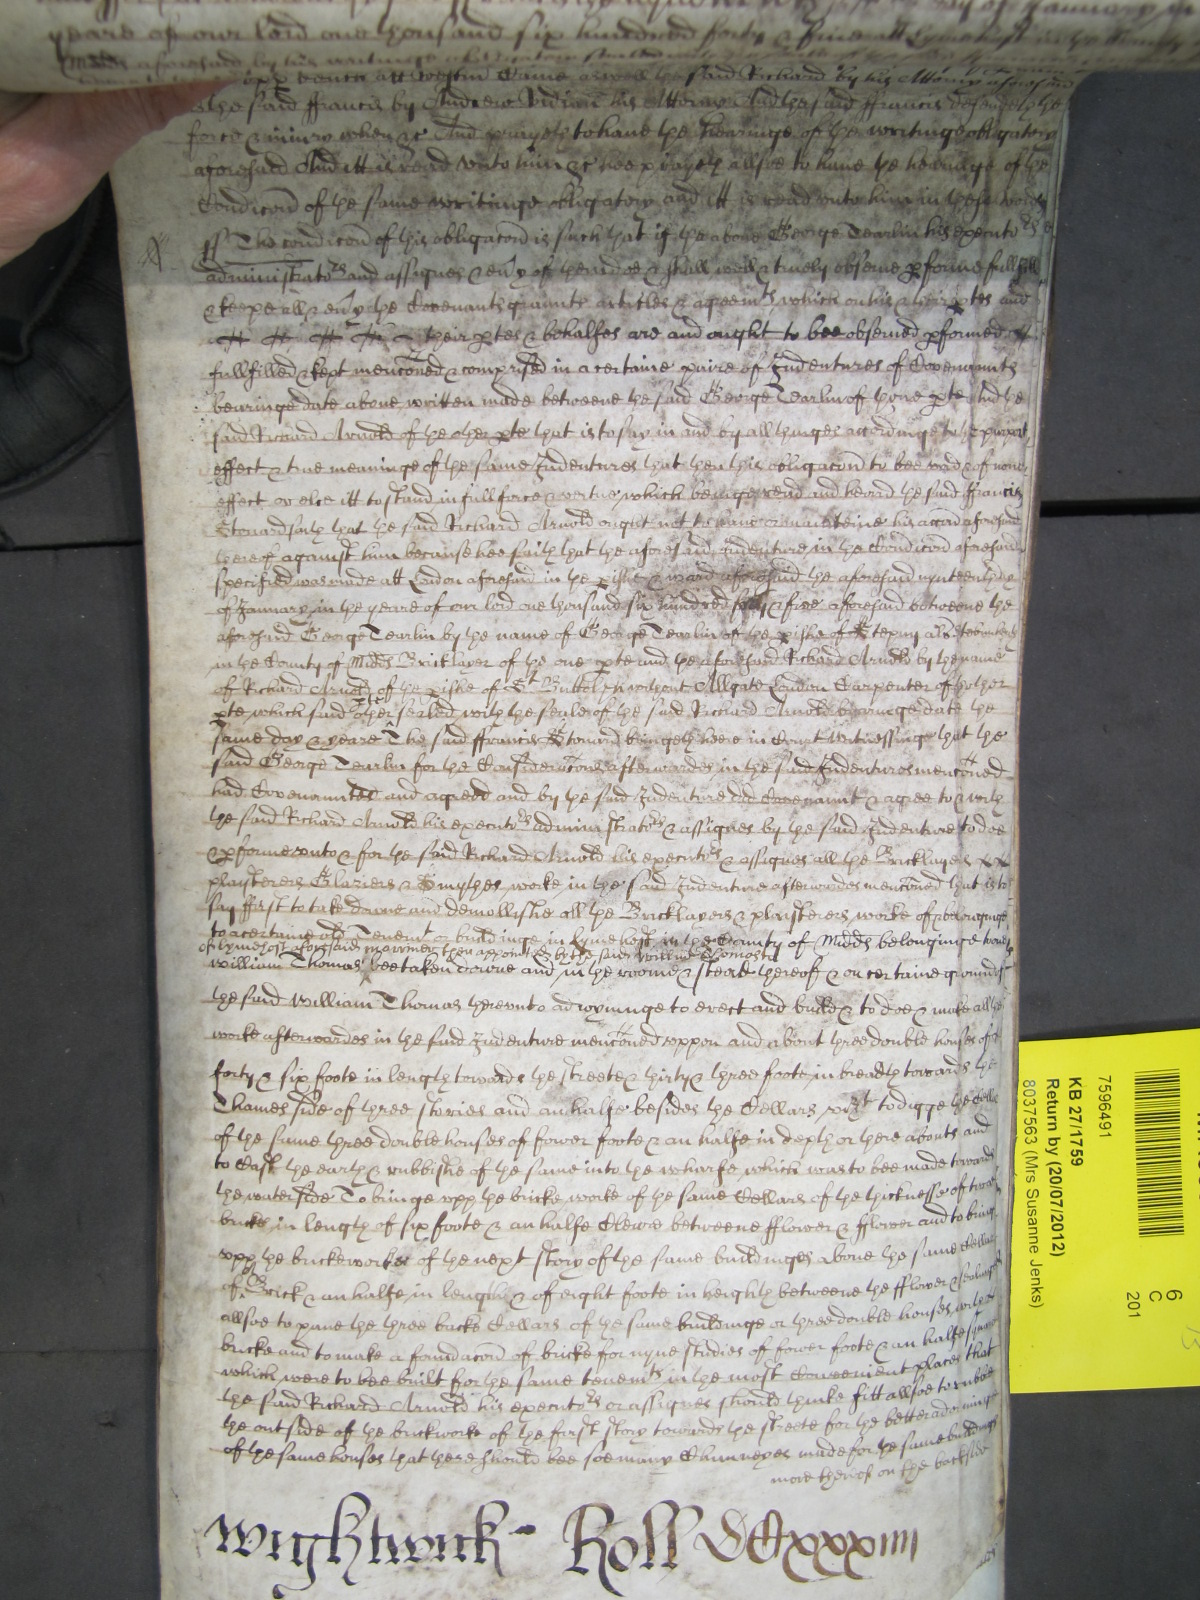 yeare of our lord one thousand six hundred forty & five att Lymehost in the County
Midds aforesaid by his writinge obligatory
bench att Westm Came aswell the said Richard by his Attorney aforesaid
the said ffrancis by Andrew Vidian his Attorney And the said ffrancis defendeth the
force & iniury when &c And prayeth to haue the hearinge of the writinge obligatory
aforesaid And itt is read vnto him &c hee prayeth allsoe to haue the hearinge of the
Condicon of the same writinge obligatory and itt is read vnto him in these words
ss The condicon of this obligacon is such that if the aboue George Tearlin his executors
administrators and assignes & euy of them doe & shall well & truely obserue pforme fullfill
& keepe all & euy the Covenants graunts articles & agreemts which on his & their ptes and
their ptes & behalfes are and ought to bee obserued pformed
fullfilled & kept menconed & comprised in a certaine paire of Indentures of Covenaunts
bearinge date aboue written made betweene the said George Tearlin of thone pte And the
said Richard Arnold of the other pte that is to say in and by all thinges accordinge to the purport
effect & true meaninge of the same Indentures that then this obligacon to bee void & of none
effect or else itt to stand in full force & vertue which beinge read and heard the said ffrancis
Stonard saith that the said Richard Arnold ought not to haue or mainteine his accon aforesaid
thereof against him because hee saith that the aforesaid Indenture in the Condicon aforesaid
specified was made att London aforesaid in the pishe & ward aforesaid the aforesaid nynteenth day
of January in the yeare of our lord one thousand six hundred forty & five aforesaid betweene the
aforesaid George Tearlin by the name of George Tearlin of the pishe of Stepny als Stebunheth
in the County of Midds Bricklayer of the one pte and the aforesaid Richard Arnold by the name
of Richard Arnold of the pishe of St Buttolph without Allgate London Carpenter of thother
pte which said other sealed with the seale of the said Richard Arnold bearinge date the
same day & yeare The said ffrancis Stonard bringeth heere in Court Wittnessinge that the
said George Tearlin for the Consideracons afterwardes in the said Indentures menconed
had Covenaunted and agreed and by the said Indenture did Covenaunt & agree to & with
the said Richard Arnold his executors administrators & assignes by the said Indenture to doe
& pforme vnto & for the said Richard Arnold his executors & assignes all the Bricklayers
plaisterers Glaziers & Smythes worke in the said Indenture afterwardes menconed that is to
say ffirst to take downe and demollishe all the Bricklayers & plaisterers worke of & belonginge
to a certaine old Tenemt or buildinge in Lymehost in the County of Midds belonginge to one
of Lymehost aforesaid marryner then appointed by the said William Thomas to
William Thomas bee taken downe and in the roome & stead thereof & on certaine ground of
the said William Thomas therevnto adioyninge to erect and build & to doe & make all the
worke afterwardes in the said Indenture menconed vppon and about three double houses of
forty & six foote in length towards the streete & thirty & three foote in breadth towards the
Thames side of three stories and an halfe besides the Cellars vizt to digge the Cellars
of the same three double houses of fower foote & an halfe in depth or there abouts and
to Cast the earth & rubbishe of the same into the wharfe which was to bee made towards
the water side To bringe vpp the bricke worke of the same Cellars of the thicknesse of two
bricks in length of six foote & an halfe Cleere betweene fflower & fflower and to bring
vpp the brickeworke of the next story of the same buildinges aboue the same Cellars
of Brick & an halfe in length & of eight foote in heighth betweene the fflower & sealinge
allsoe to paue the three backe Cellars of the same buildinge or three double houses with
bricke and to make a foundacon of bricke for nyne studies of fower foote & an halfe square
which were to bee built for the same tenemts in the most Conveenient places that
the said Richard Arnold his executors or assignes should thinke fitt allsoe to rubbe
the out side of the brickworke of the first story towards the streete for the better adorninge
of the same houses that there should bee soe many Chimneyes made for the same buildings
more thereof on the backside
Wightwick Roll DCxxxiiii
7596491
KB 27/1759
Return by (20/07/2012)
8037563 (Mrs Susanne Jenks)
6
C
201